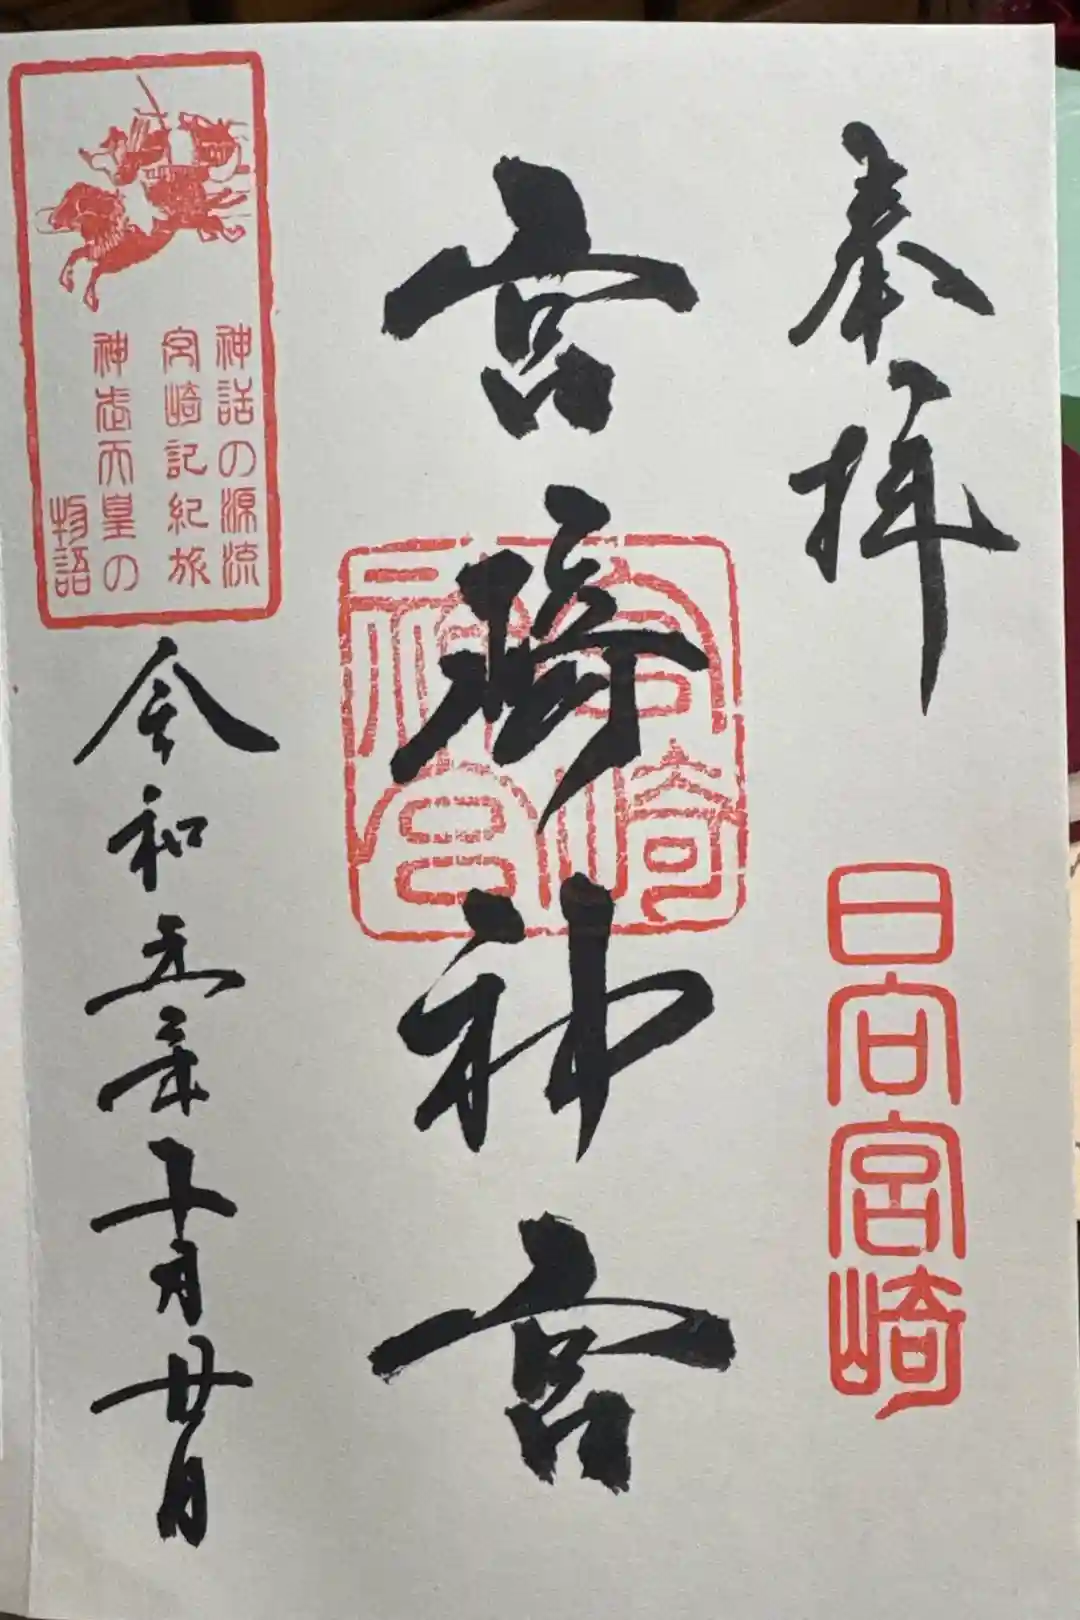 奉拝
日向宮崎
宮崎神宮
宮崎
神宮
神話の源流
宮崎記紀旅
神武天皇の
物語
令和元年十月廿日